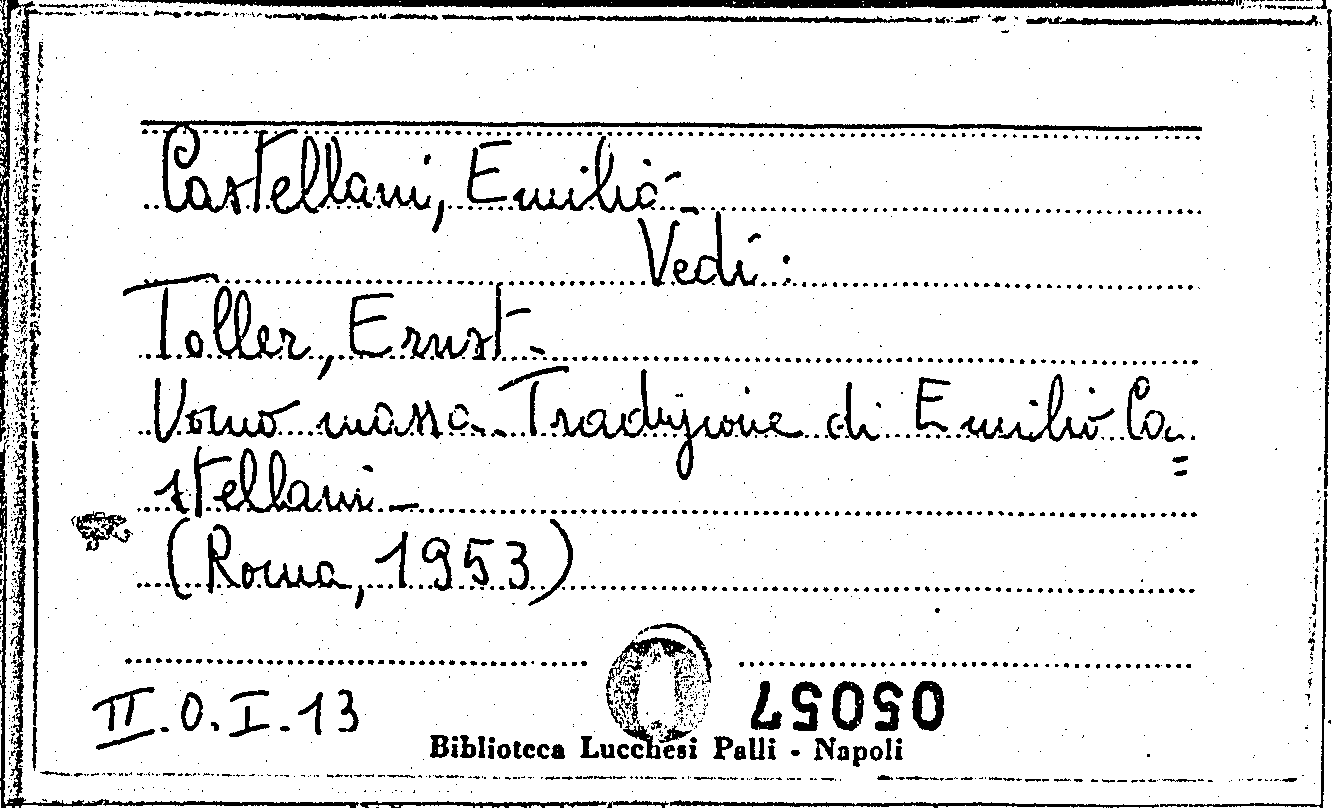 Castellani, Emilio -
Vedi:
Toller, Ernst -
Uomo massa - Traduzione di Emilio Ca=
stellani -
(Roma, 1953)
II.O.I.13
05057
Biblioteca Lucchesi Palli - Napoli